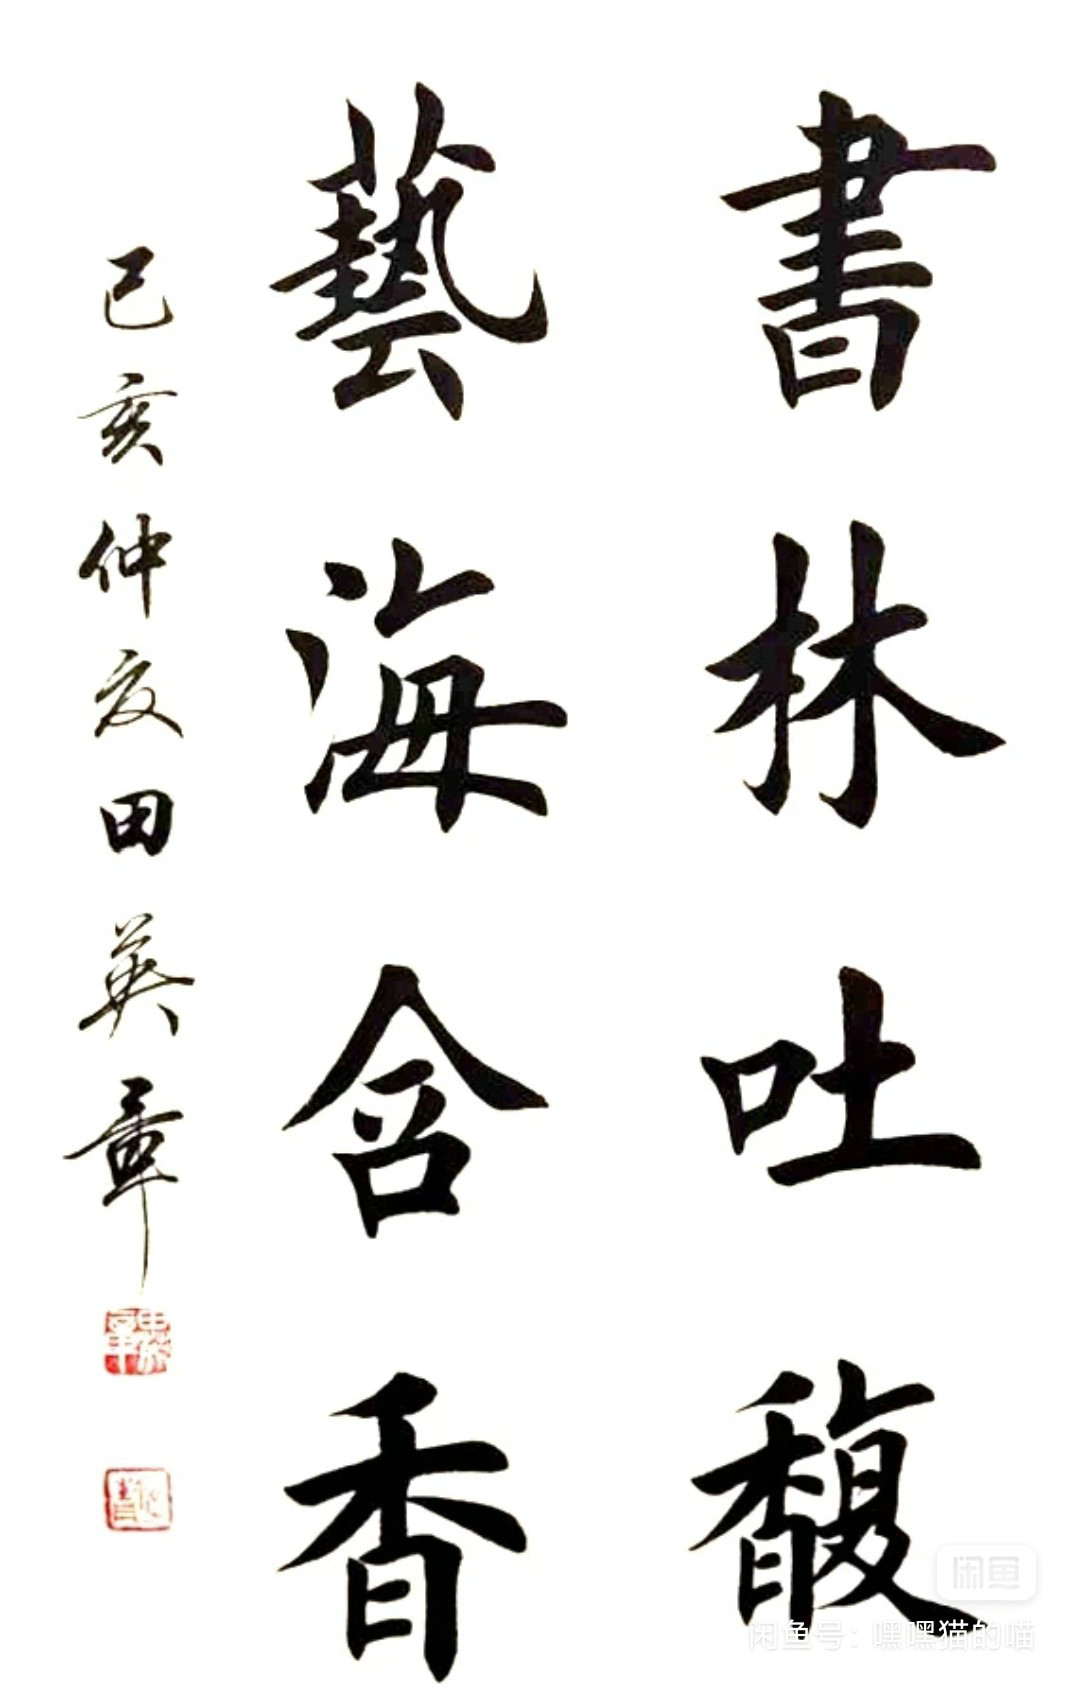 書林吐馥
藝海含香
己亥仲夏田英章
闲鱼
闲鱼号：嘿嘿猫的喵